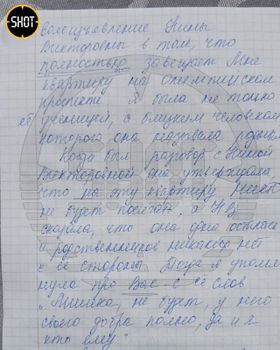 SHOT
волеизъявление Нины
Викторовны в том, что
полностью завещает мне
квартиру на Олимпийском
проспекте я была не только
её ученицей, а близким человеком
которого она называла
Когда был разговор с Ниной
Викторовной она утверждала,
что на эту квартиру никто
не будет , а НВ
сказала, что она одна осталась
и родственников никакого нет
с её стороны. Тогда я упомя
нула про Вас - с её слов
"Мишка, не будет, у него
своего добра полно, да и я
кто ему"